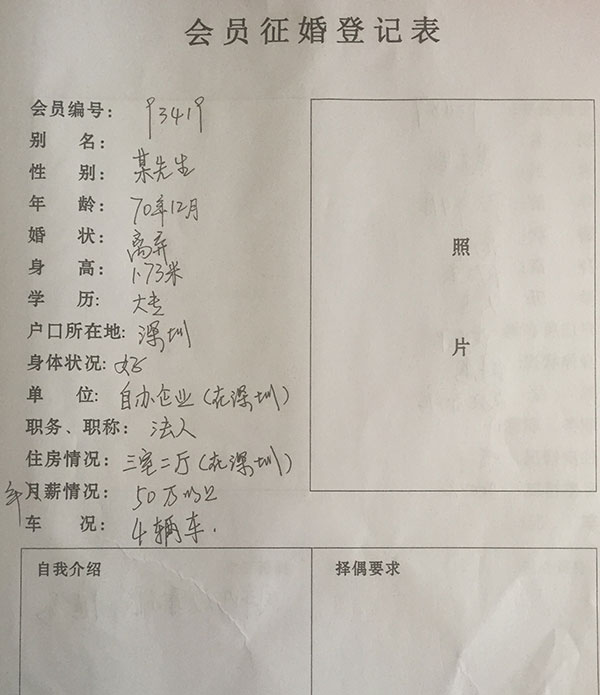 会员征婚登记表
会员编号: 93419
别 名:
性 别: 某先生
年 龄: 70年12月
婚 状: 离弃
身 高: 1.73米
学 历: 大专
户口所在地: 深圳
身体状况: 好
单 位: 自办企业(在深圳)
职务、职称: 法人
住房情况: 三室二厅(在深圳)
年月薪情况: 50万以上
车 况: 4辆车.
照
片
自我介绍
择偶要求